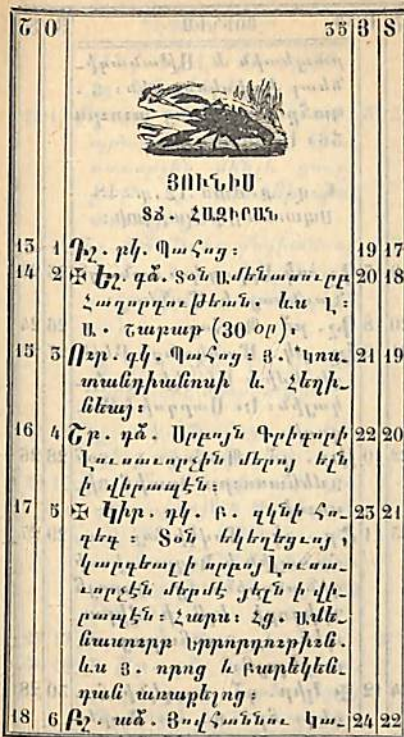 Շ Օ 35 Յ Տ
ՅՈՒՆԻՍ
ՏՃ. ՀԱԶԻՐԱՆ.
13 1 Դշ. բկ. Պահոց։ 19 17
14 2 ✠ Եշ. գձ. Տօն Ամենասուրբ 20 18
Հաղորդութեան. ևս Լ։
Ա. Շաբաթ (30 օր).
15 3 Ուր. գկ. Պահոց։ Յ. Կոս֊ 21 19
տանդիանոսի և Հեղի֊
նեայ։
16 4 Շբ. դձ. Սրբոյն Գրիգորի 22 20
Լուսաւորչին մերոյ ելն
ի վիրապէն։
17 5 ✠ Կիր. դկ. Բ. զկնի Հո֊ 23 21
գեգ ։ Տօն եկեղեցւոյ,
կարդեալ ի սրբոյ Լուսա֊
ւորչէն մերմէ յելն ի վի֊
րապէն։ Հարս։ Հց. Ամե֊
նասուրբ Երրորդութիւն.
ևս Յ. որոց և բարեկեն֊
դան առաքելոց։
18 6 Բշ. աձ. Յովհաննու Կա֊ 24 22